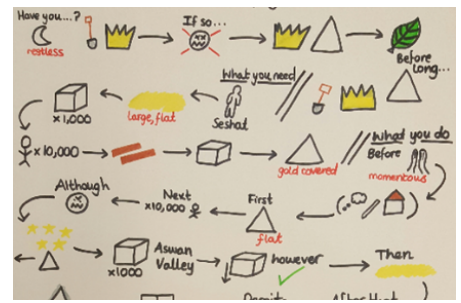 Have you...?
restless
If so...
Before long...
What you need
x1,000
large, flat
Seshat
x10,000
gold covered
What you do
Before
momentous
Although
Next
x10,000
First
flat
x1000
Aswan Valley
however
Then